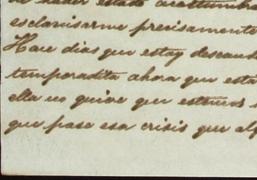 haber estado acostumb
esclavisarme precisamente
Hace dias que estoy deseand
temporadita ahora que esta
ella no quiere que estemos
que pase esa crisis que al